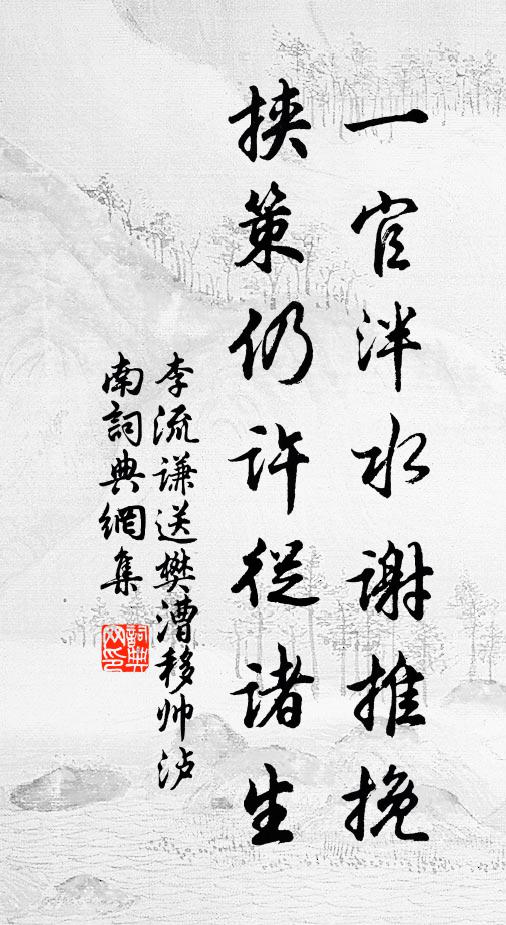 一官泮水谢推挽
挟策仍许从诸生
李流谦送樊漕移帅泸
南詞典網集
詞典网印